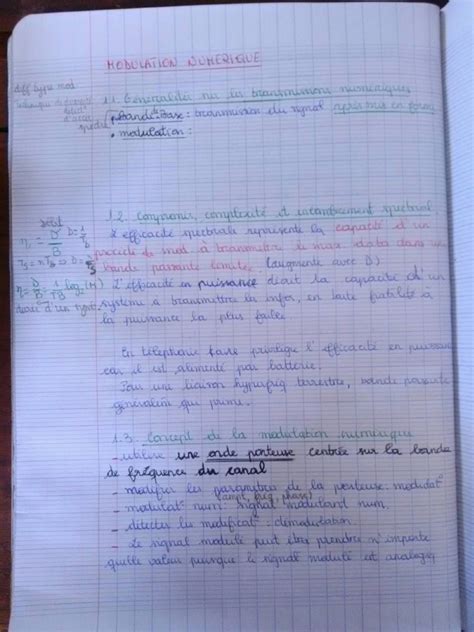 MODULATION NUMERIQUE
diff type mod
1.1. Généralités sur les transmissions numériques
bande de base : transmission du signal après mise en forme
• modulation :
1.2. Compromis, complexité et encombrement spectral
L'efficacité spectrale représente la capacité d'un
procédé de mod à transmettre le max data dans une
bande passante limitée. (augmente avec D)
L'efficacité en puissance décrit la capacité d'un
système à transmettre les infos, en toute fiabilité à
la puissance la plus faible
débit
η = D/B D = 1/Tb
Ts = nTb => D =
En téléphonie privilégie l'efficacité en puissance
car il est alimenté par batterie.
Pour une liaison hyperfréq terrestre, bande passante
généralem qui prime.
1.3. Concept de la modulation numérique
- utilise une onde porteuse centrée sur la bande
de fréquence du canal
- modifier les paramètres de la porteuse : modulat°
(ampl, freq, phase)
- modulat° num : signal modulant num.
- détecter les modificat° : démodulation.
- Le signal modulé peut être prendre n'importe
quelle valeur puisque le signal modulé est analogiq